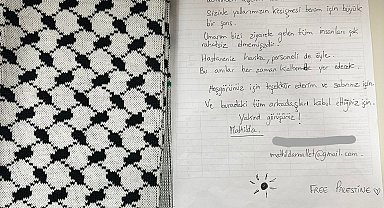 Sizinle yollarımızın kesişmesi benim için büyük
bir şans.
Omarım bizi ziyarete gelen tüm insanları çok
rahatsız etmemişizdir.
Hastaneniz harika, personeli de öyle.
Bu anılar her zaman kalbimde yer edecek.
Hoşgörünüz için teşekkür ederim ve sabrınız için.
Ve buradaki tüm arkadaşları kabul ettiğiniz için.
Yakında görüşürüz!
Mathilda.
FREE PALESTINE